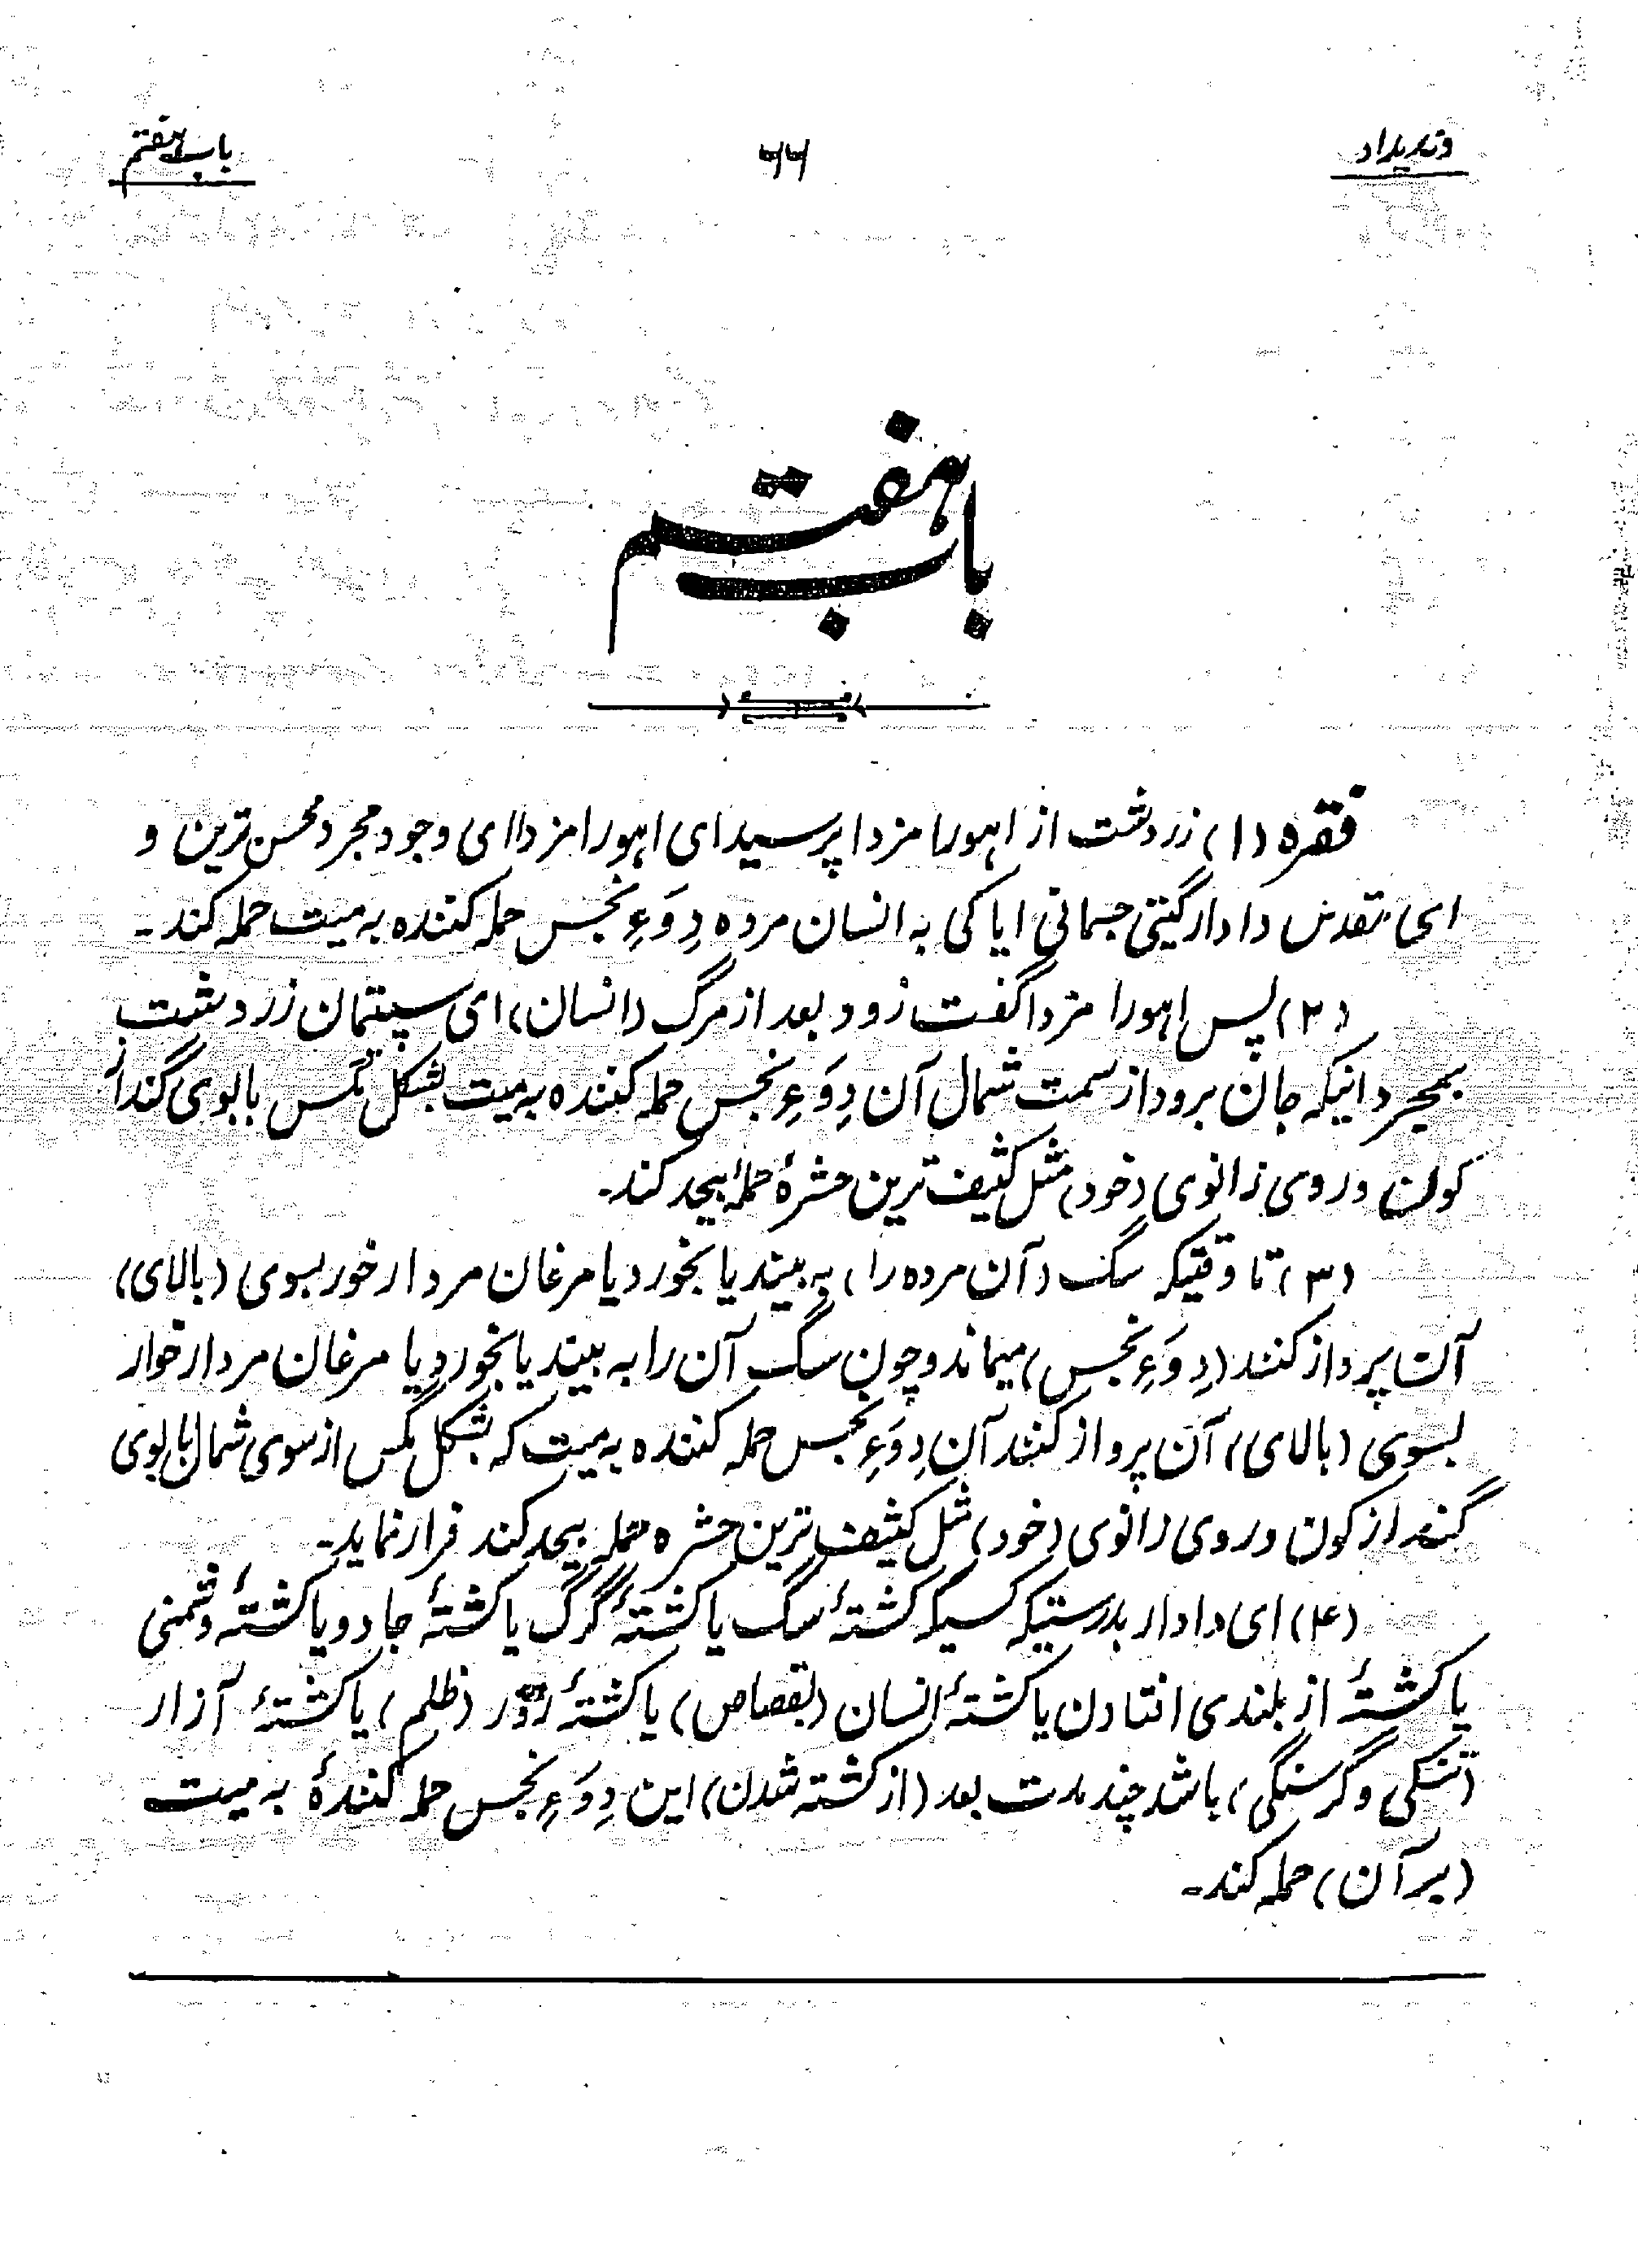 وندیداد
۷۷
باب هفتم
باب هفتم
فقره (۱) زردشت از اهورا مزدا پرسید ای اهورا مزدا ای وجود مجرد محسن‌ترین و
ای مقدس دادار گیتی جسمانی ایا کی به انسان مرده دِوَءِ نجس حمله کننده به میت حمله کند ـ
(۲) پس اهورا مزدا گفت زود بعد از مرگ (انسان) ای سپتمان زردشت
بمجرد اینکه جان برود از سمت شمال آن دِوَءِ نجس حمله کننده به میت بشکل مگس با بوی گند از
کون و روی زانوی (خود) مثل کثیف ترین حشرهٔ حملهٔ بیحد کند ـ
(۳) تا وقتیکه سگ (آن مرده را) به بیند یا بخورد یا مرغان مردار خور بسوی (بالای)
آن پرواز کنند (دِوَءِ نجس) میماند و چون سگ آن را به بیند یا بخورد یا مرغان مردار خوار
بسوی (بالای) آن پرواز کنند آن دِوَءِ نجس حمله کننده به میت که بشکل مگس از سوی شمال با بوی
گند از کون و روی زانوی (خود) مثل کثیف ترین حشره حمله بیحد کند فرار نماید ـ
(۴) ای دادار بدرستیکه کسیکه کشتهٔ سگ یا کشتهٔ گرگ یا کشتهٔ جادو یا کشتهٔ دشمنی
یا کشتهٔ از بلندی افتادن یا کشتهٔ انسان (بقصاص) یا کشتهٔ زور (ظلم) یا کشتهٔ آزار
(تشنگی و گرسنگی) باشد چند مدت بعد (از کشته شدن) این دِوَءِ نجس حمله کنندهٔ به میت
(بر آن) حمله کند ـ